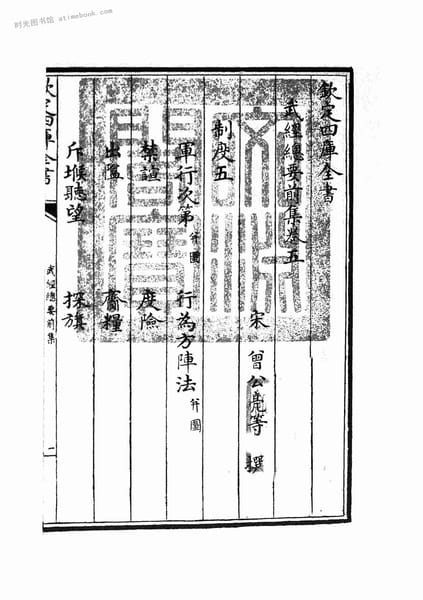 时光图书馆 atimebook.com
欽定四庫全書
武經總要前集卷五
宋 曾公亮等 撰
制度五
軍行次第 并圖 行為方陣法 并圖
禁諠 度險
出隘 齎糧
斥堠聽望 探旗
欽定四庫全書
武經總要前集